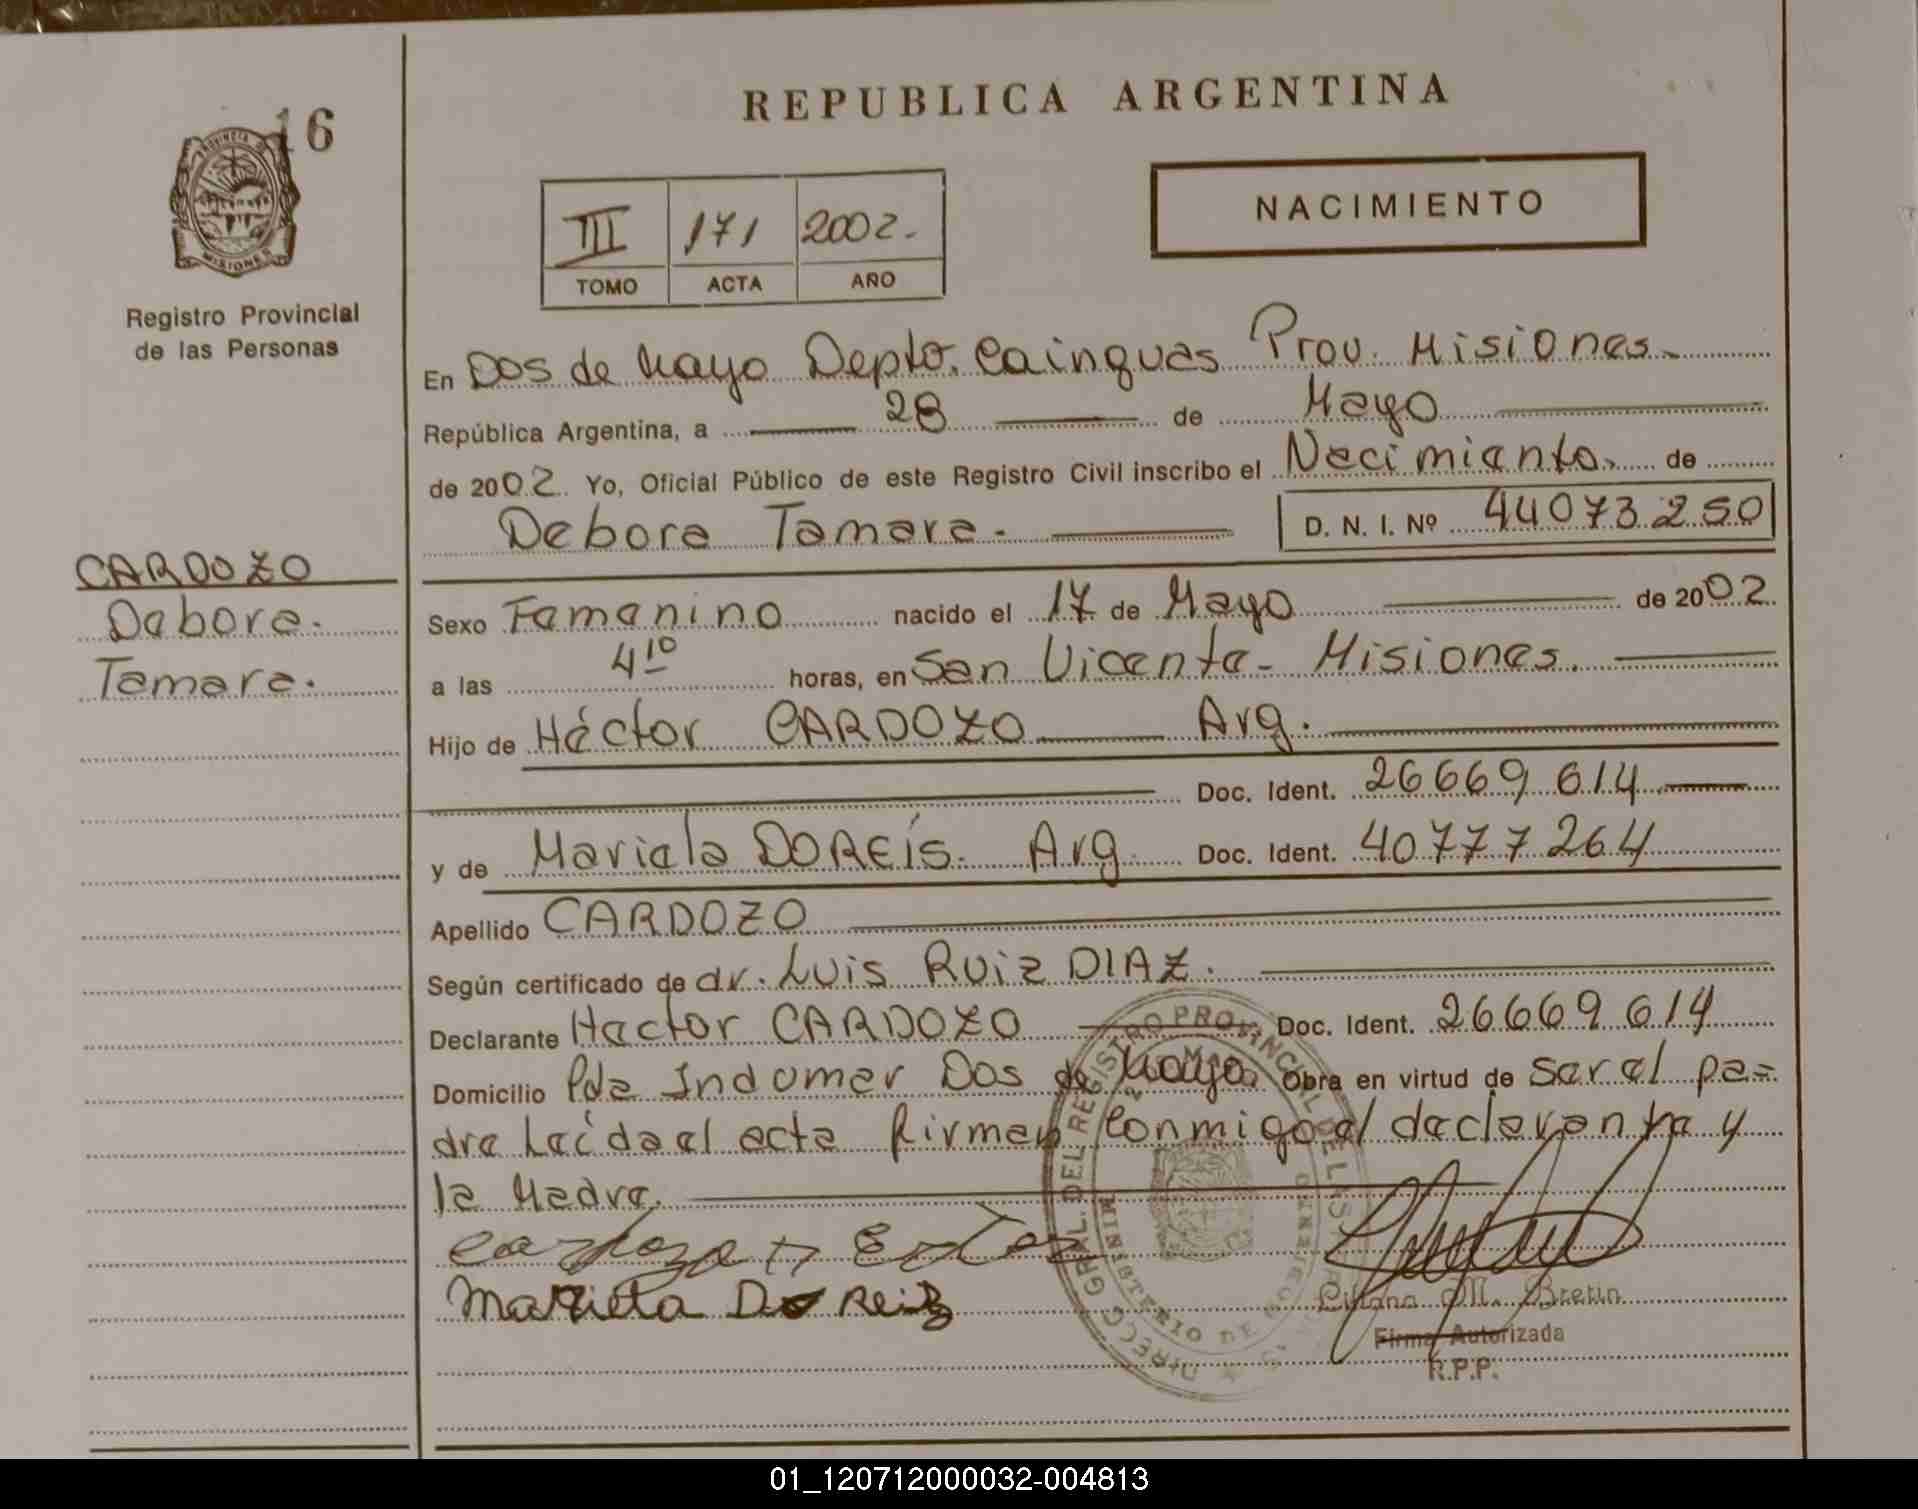 16
PROVINCIA DE
MISIONES
Registro Provincial
de las Personas
REPUBLICA ARGENTINA
III 171 2002.
TOMO ACTA AÑO
NACIMIENTO
En Dos de Mayo Depto. Cainguas Prov. Misiones.
República Argentina, a 28 de Mayo
de 2002. Yo, Oficial Público de este Registro Civil inscribo el Necimiento. de
Debora Tamara. D. N. I. Nº 44073250
CARDOZO
Debora.
Tamara.
Sexo Femenino nacido el 17 de Mayo de 2002.
a las 4 10 horas, en San Vicente - Misiones.
Hijo de Héctor CARDOZO Arg.
Doc. Ident. 26669614
y de Mariela DOREÍS. Arg. Doc. Ident. 40777264
Apellido CARDOZO
Según certificado de dr. Luis Ruiz DIAZ.
Declarante Hector CARDOZO Doc. Ident. 26669614
Domicilio Pde Indumar Dos de Mayo. Obra en virtud de Ser el pa=
dre Leída el acta firman conmigo el declarante y
la Madre.
Cardozo
Marieta Do Reiz
DIRECC GRAL. DEL REGISTRO PROVINCIAL DE LAS
MINISTERIO DE GOBIERNO
Liliana M. Bretin
Firma Autorizada
R.P.P.
01_120712000032-004813